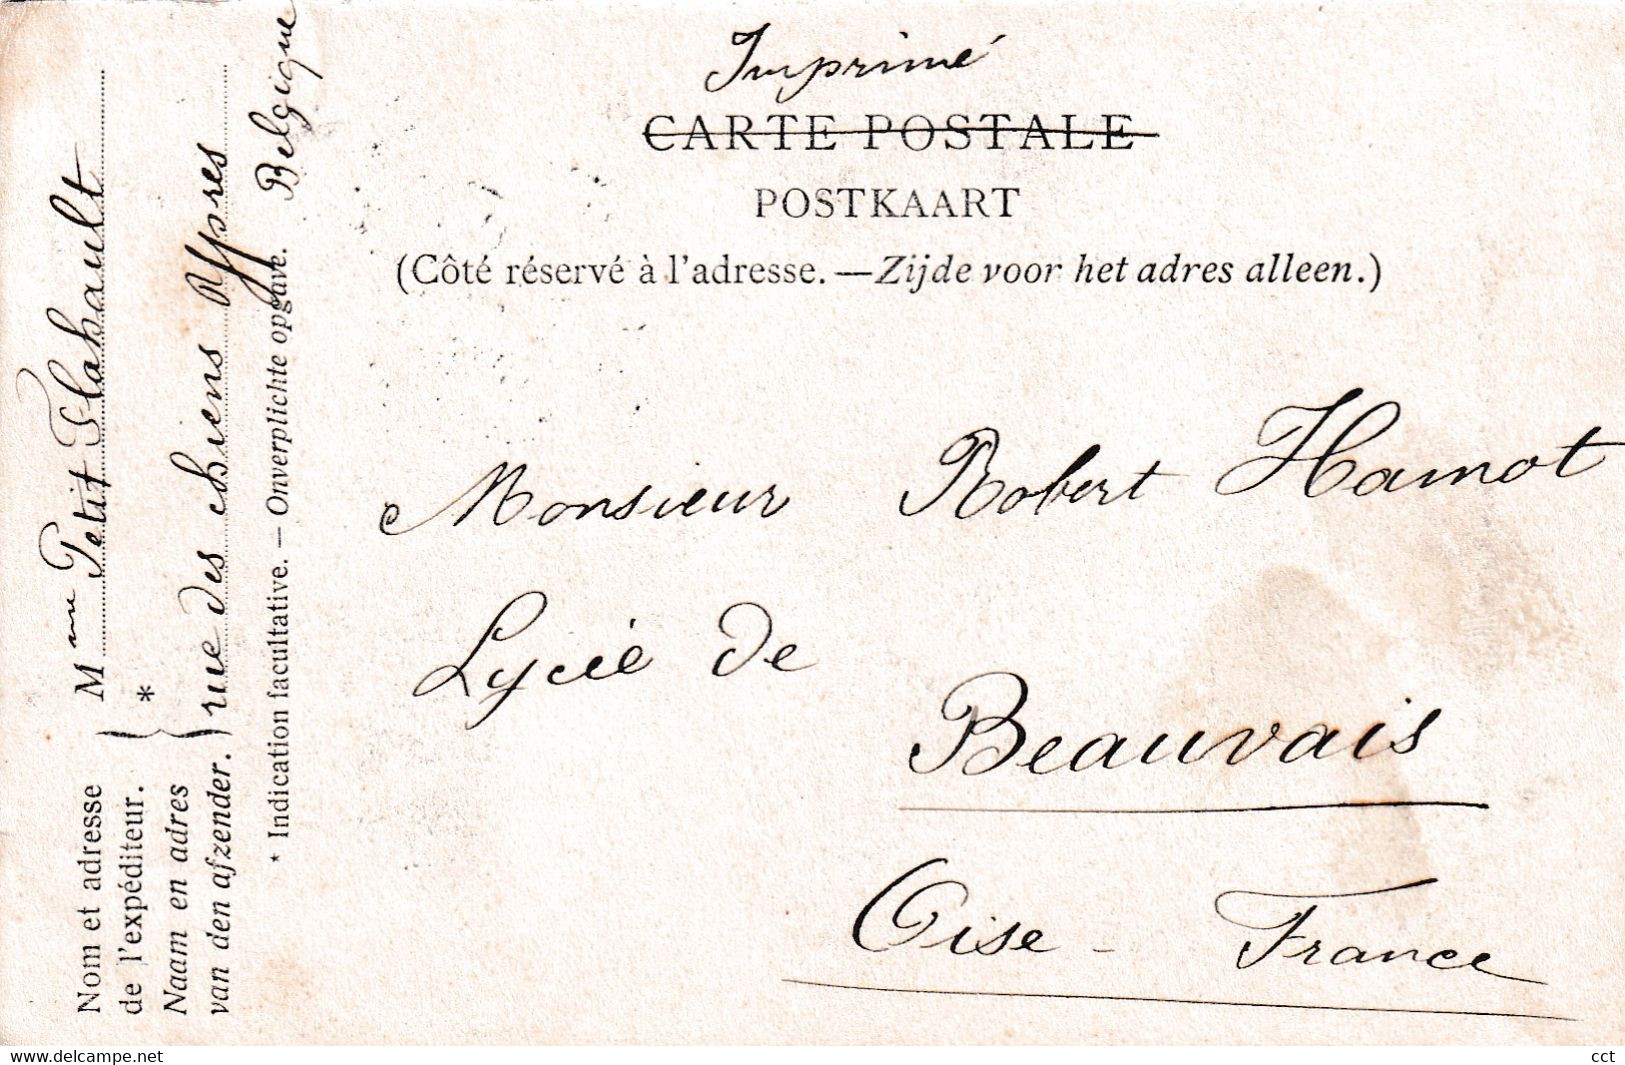 Imprimé
CARTE POSTALE
POSTKAART
(Côté réservé à l'adresse. — Zijde voor het adres alleen.)
Monsieur Robert Hamot
Lycée de
Beauvais
Oise - France
Nom et adresse
de l'expéditeur.
Naam en adres
van den afzender.
*
Mme Petit Flahault
rue des chiens Ypres
Belgique
* Indication facultative. — Onverplichte opgave.
www.delcampe.net
cct